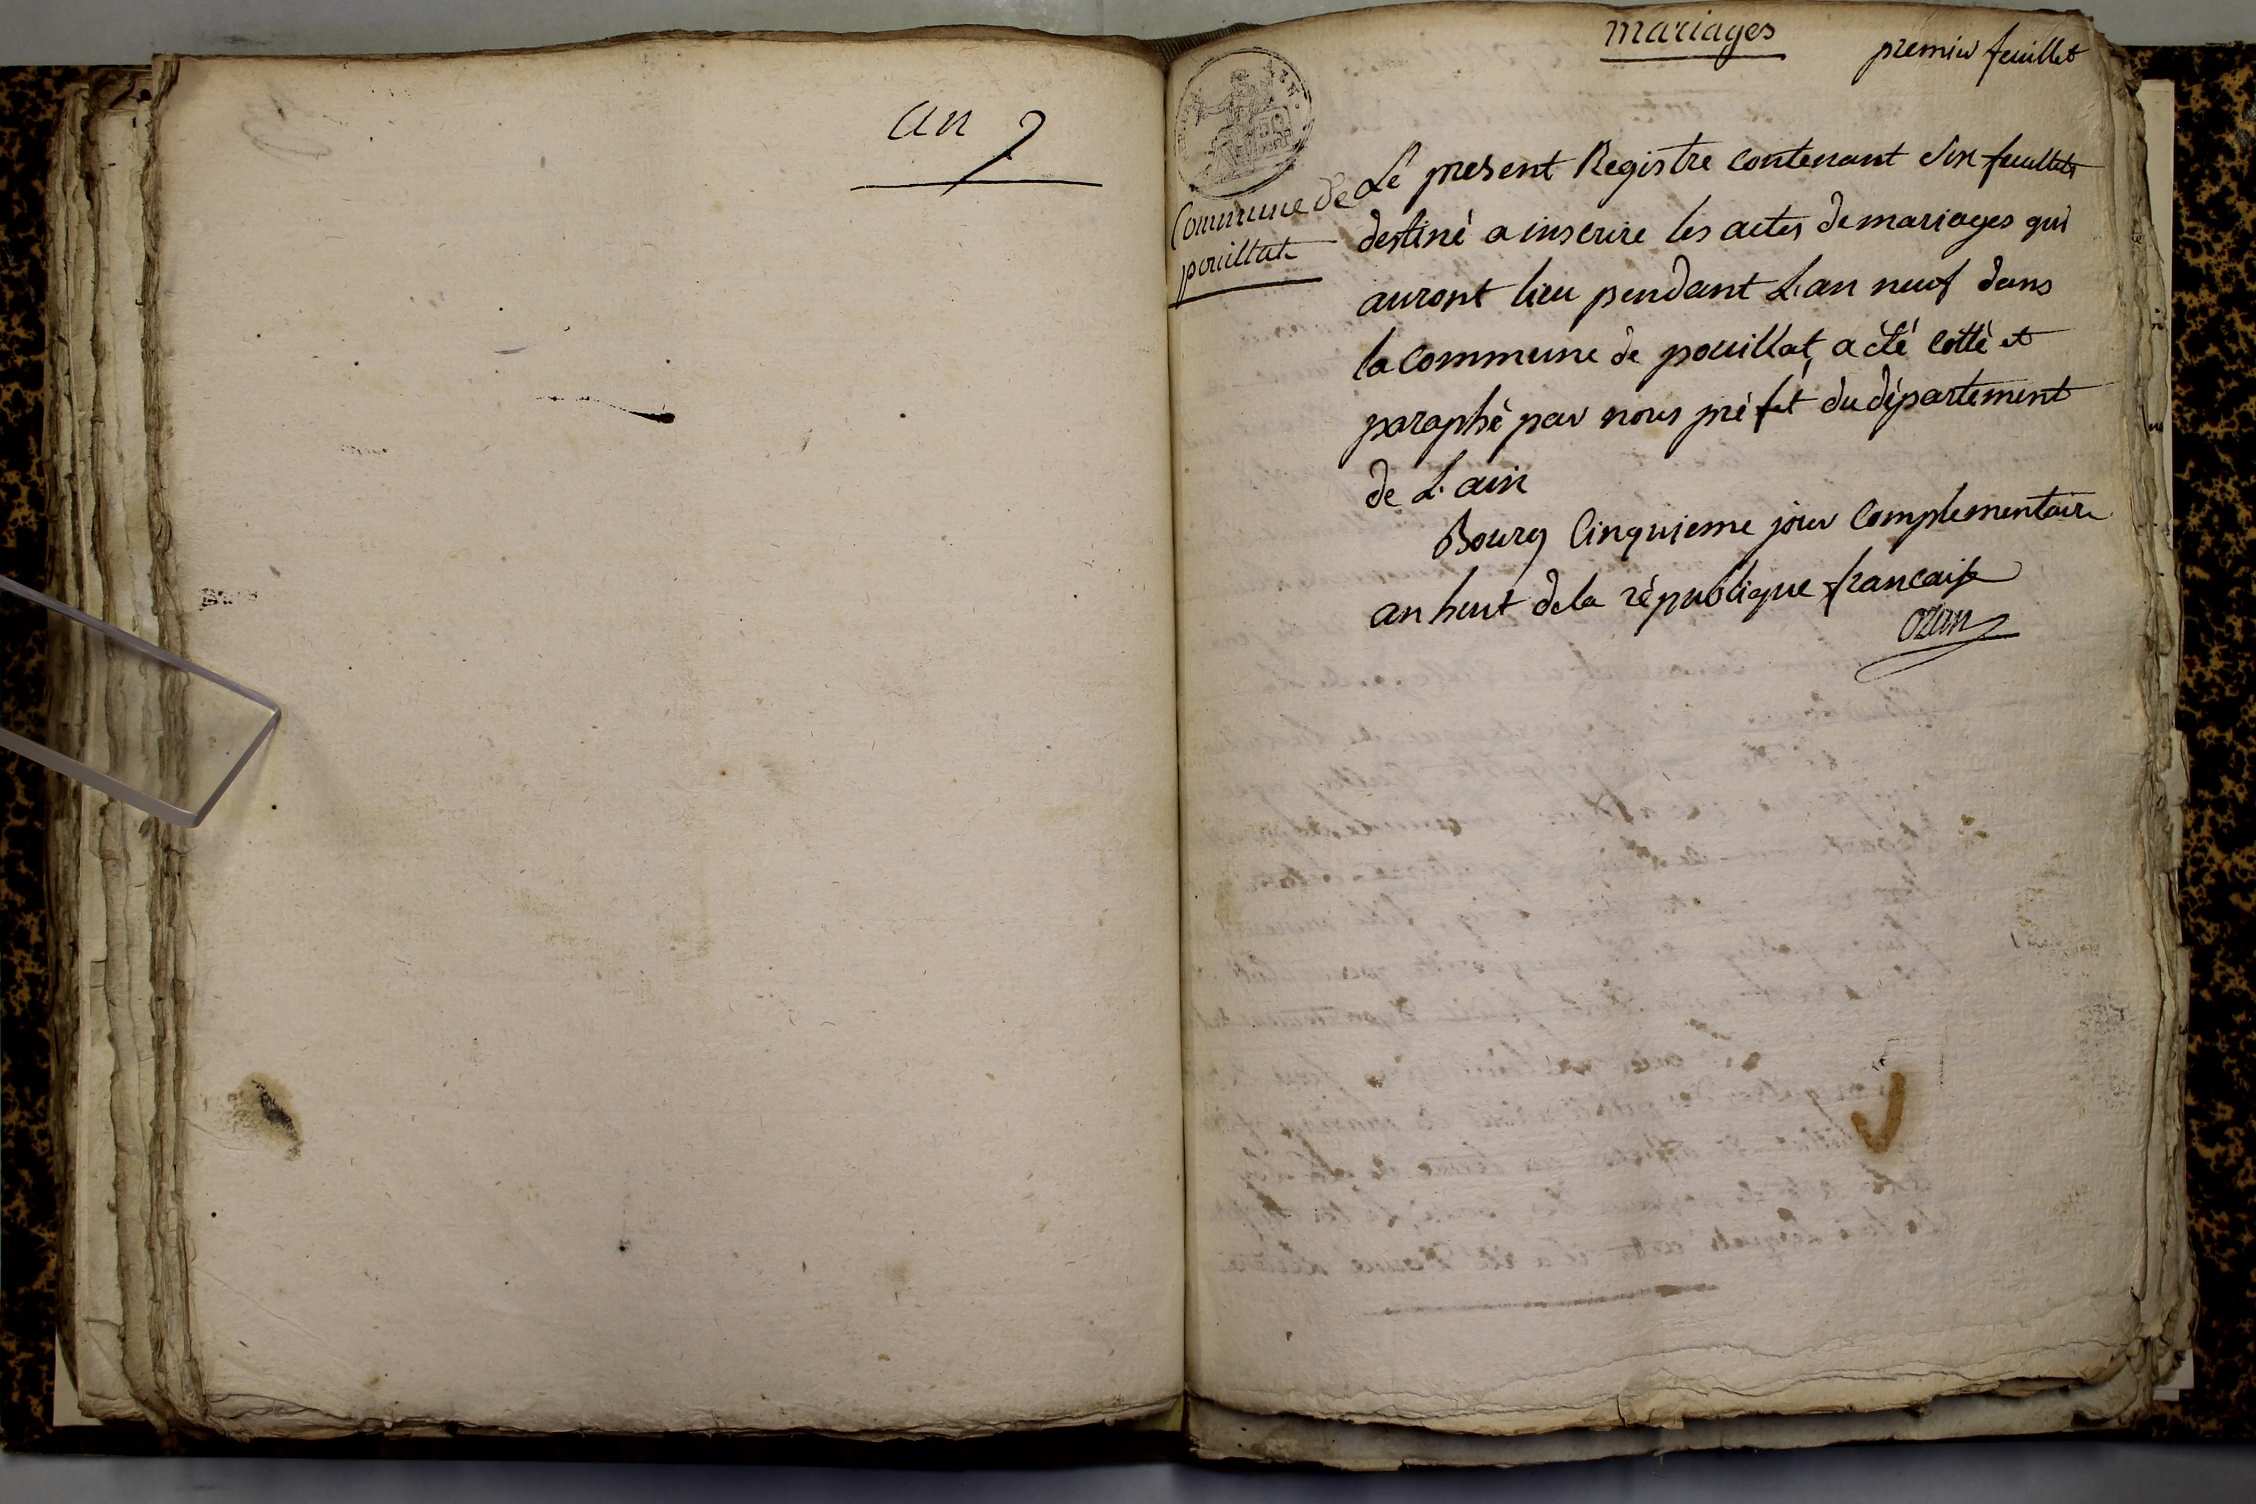 an 9
mariages
premier feuillet
Commune de
pouillat
Le present Registre contenant six feuillets
destiné a inscrire les actes de mariages qui
auront lieu pendant L'an neuf dans
la commune de pouillat, a été cotté et
paraphé par nous préfet du département
de L'ain
Bourg Cinquieme jour complementaire
an huit de la république francaise
ozun